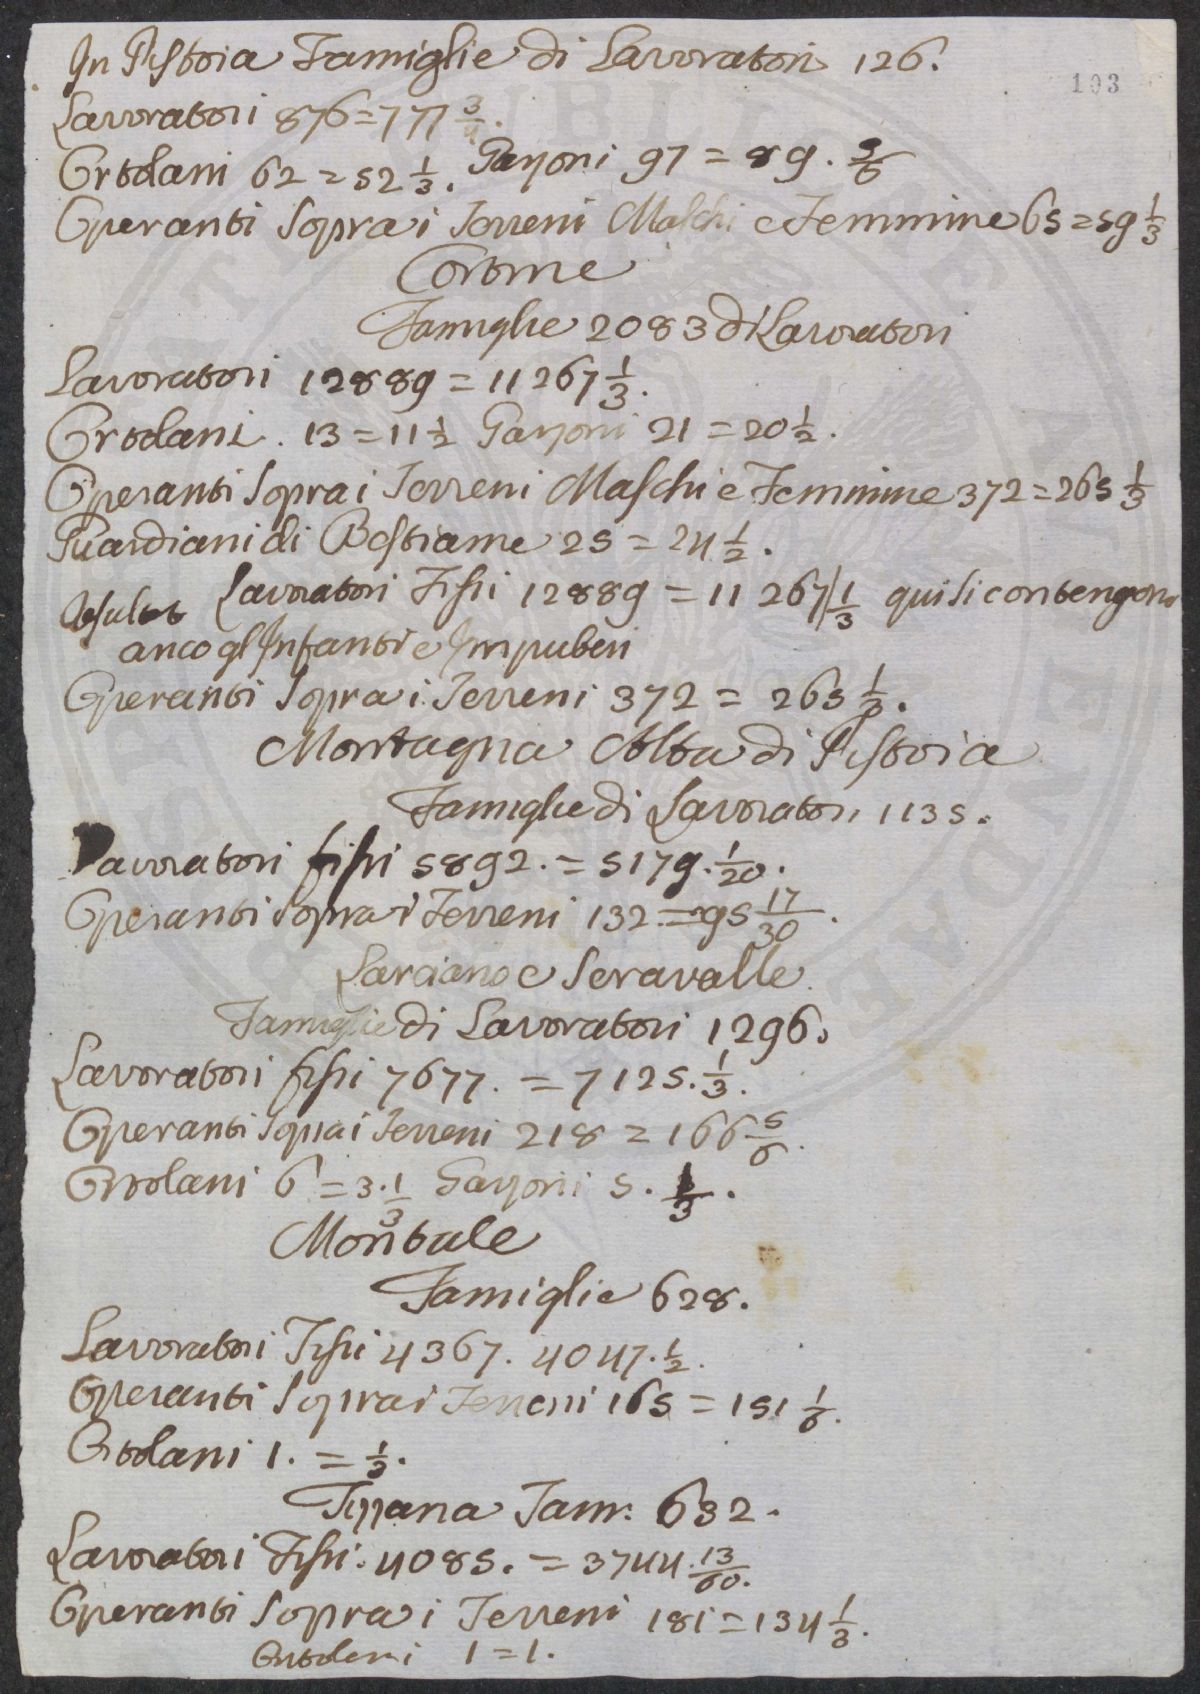 In Pistoia Famiglie di Lavoratori 126.
103
Lavoratori 876 = 777 3/4.
Ortolani 62 = 52 1/3. Garzoni 97 = 89. 5/6
Operanti Sopra i Terreni Maschi e Femmine 65 = 59 1/3
Cortine
Famiglie 2083 di Lavoratori
Lavoratori 12889 = 11267 1/3.
Ortolani. 13 = 11 1/2 Garzoni 21 = 20 1/2.
Operanti Sopra i Terreni Maschi e Femmine 372 = 265 1/3
Guardiani di Bestiame 25 = 24 1/2.
Lavoratori Fissi 12889 = 11267 1/3 qui si contengono
anco gl'Infanti e Impuberi
Operanti Sopra i Terreni 372 = 265 1/3.
Montagna Alta di Pistoia
Famiglie di Lavoratori 1135.
Lavoratori fissi 5892. = 5179. 1/20.
Operanti Sopra i Terreni 132. = 95 17/30.
Larciano e Seravalle
Famiglie di Lavoratori 1296.
Lavoratori fissi 7677. = 7125. 1/3.
Operanti Sopra i Terreni 218 = 166 5/6.
Ortolani 6 = 3. 1/3 Garzoni 5. 1/3.
Montale
Famiglie 628.
Lavoratori Fissi 4367. 4047. 1/2.
Operanti Sopra i Terreni 165 = 151 1/6.
Ortolani 1. = 1/3.
Tizzana Fam: 632.
Lavoratori Fissi. 4085. = 3744. 13/60.
Operanti Sopra i Terreni 181 = 134 1/3.
Ortolani 1 = 1.